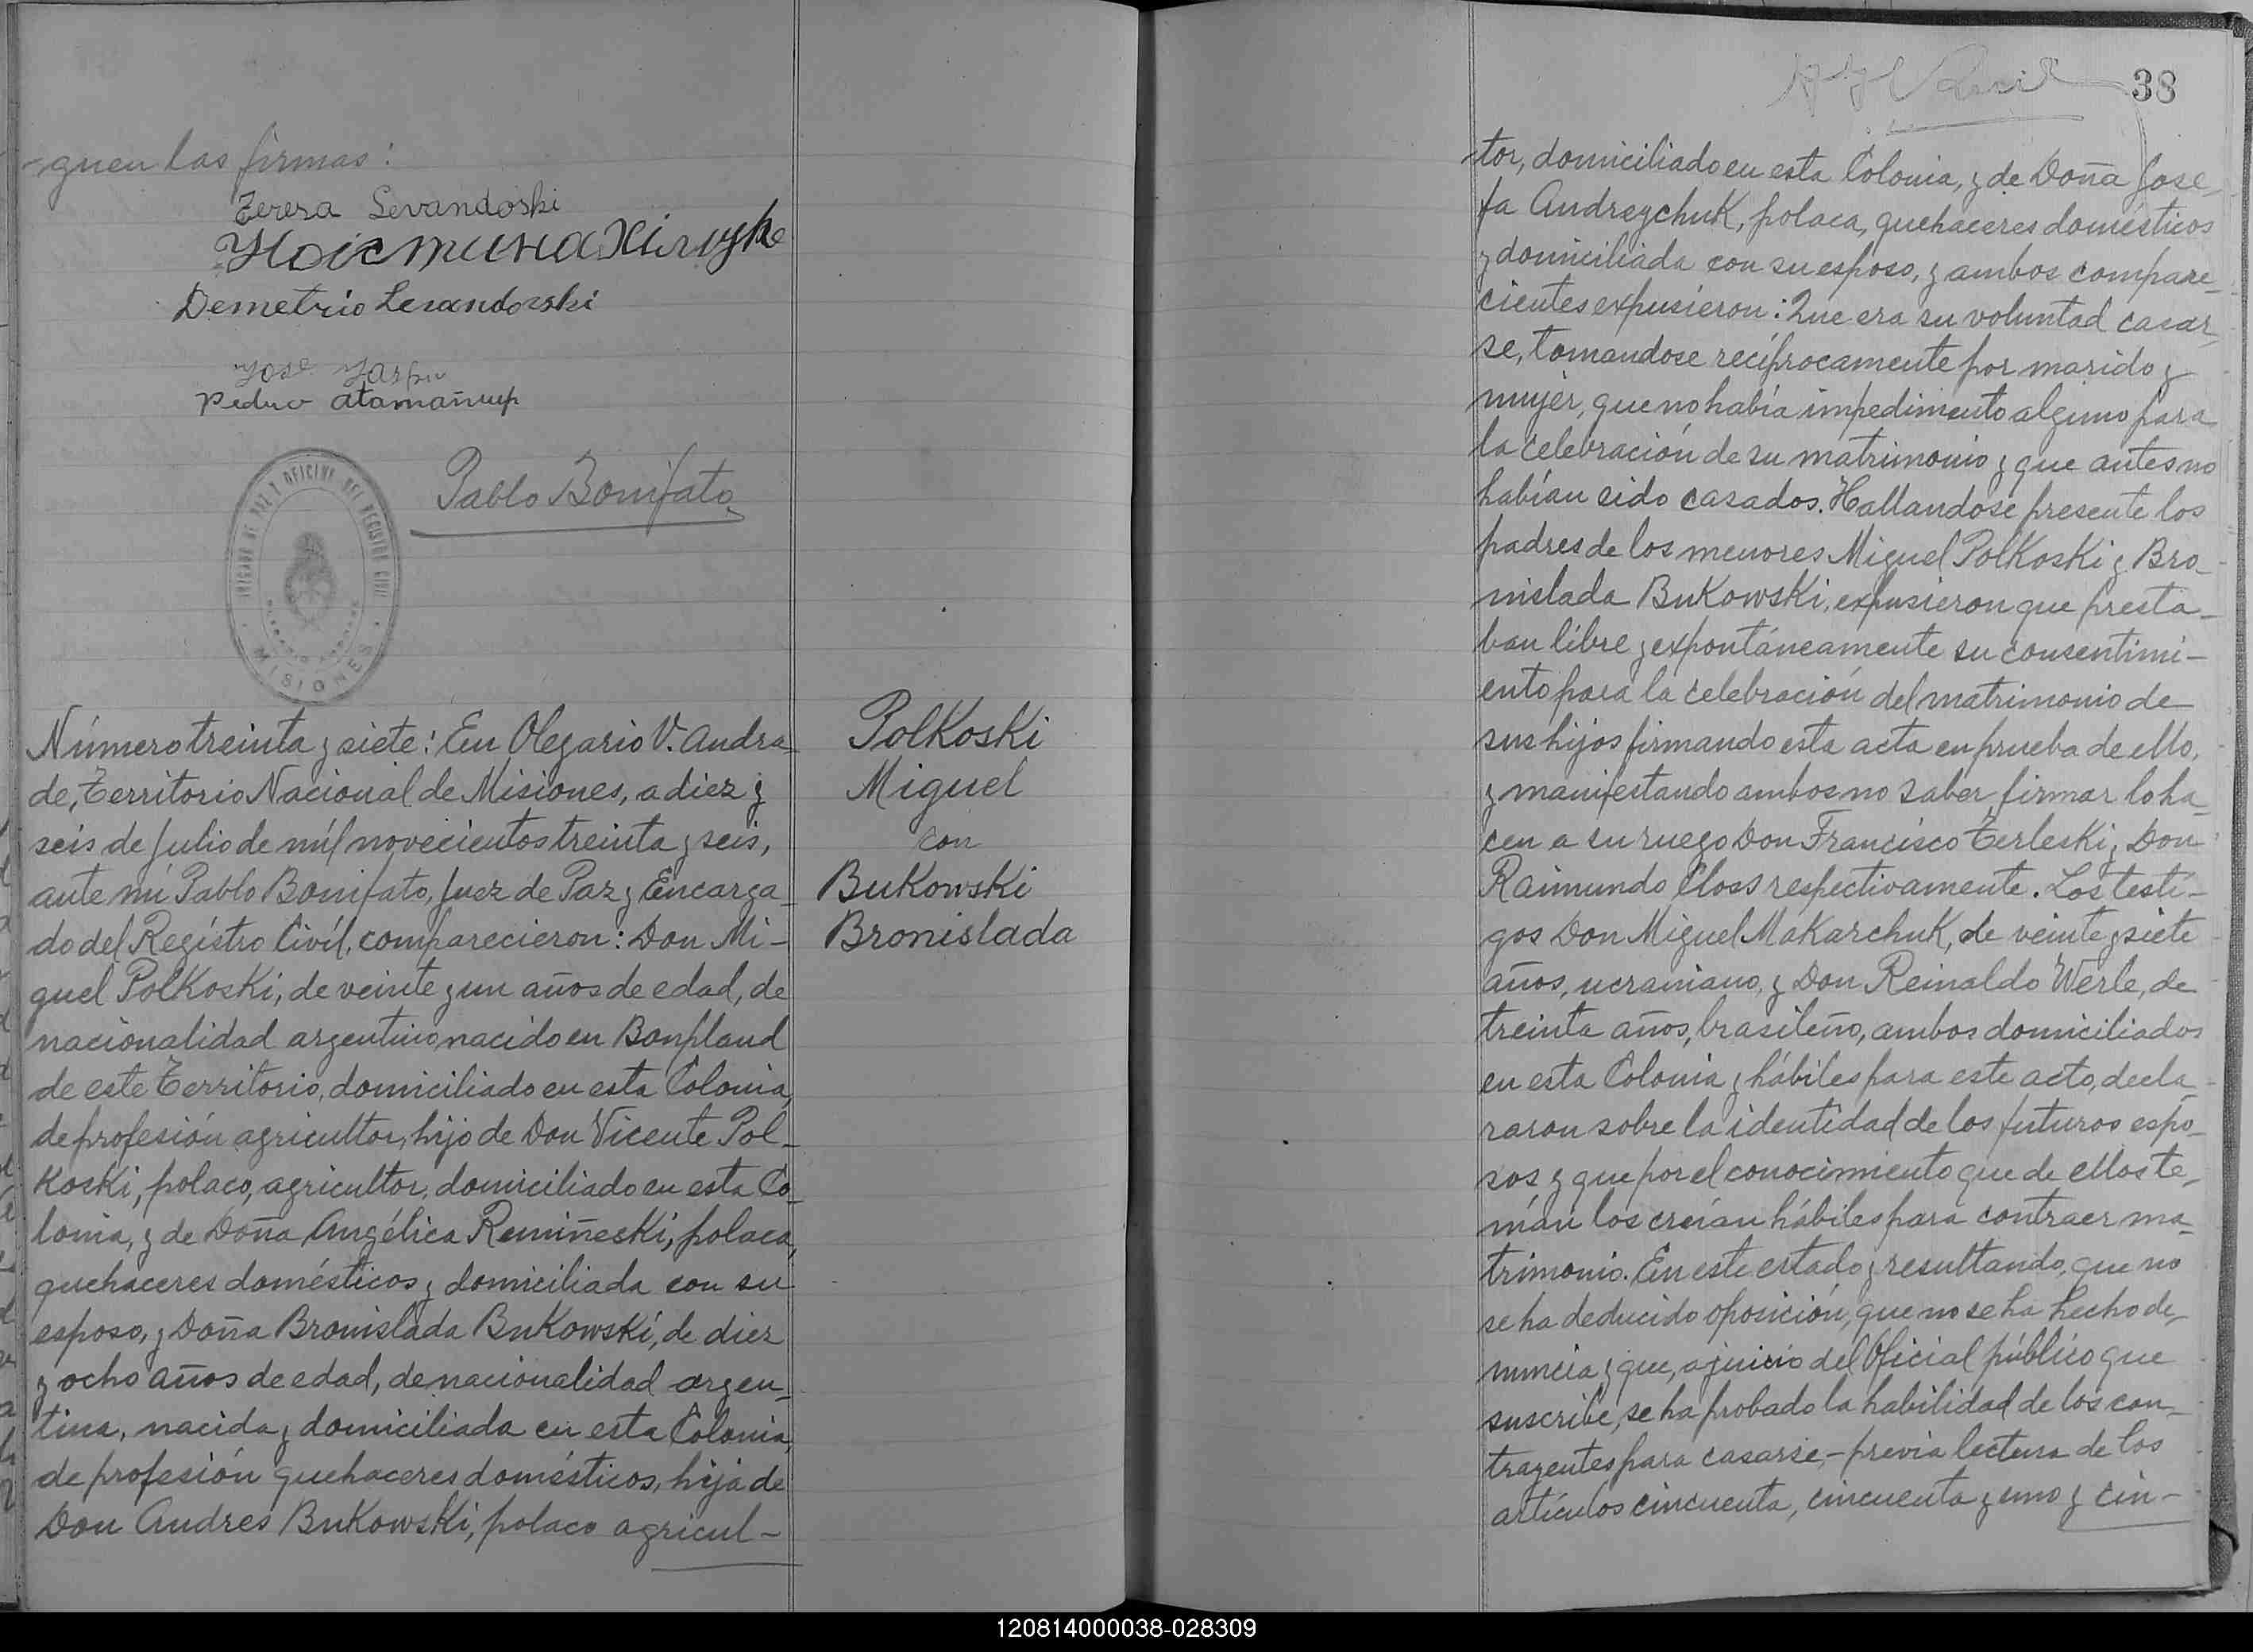 -guen las firmas:
Teresa Levandoski
Demetrio Levandoski
José
Pedro
Pablo Bonifato
OFICINA DEL REGISTRO CIVIL
MISIONES
Número treinta y siete: En Olegario V. Andra-
de, Territorio Nacional de Misiones, a diez y
seis de Julio de míl novecientos treinta y seis,
ante mí Pablo Bonifato, Juez de Paz y Encarga-
do del Regístro Civíl, comparecieron: Don Mi-
guel PolKosKi, de veinte y un años de edad, de
nacionalidad argentino, nacido en Bonpland
de este Territorio, domiciliado en esta Colonia,
de profesión agricultor, hijo de Don Vicente Pol-
KosKi, polaco, agricultor, domiciliado en esta Co-
lonia, y de Doña Angélica RemiñesKi, polaca,
quehaceres domésticos y domiciliada con su
esposo, y Doña Bronislada BuKowsKi, de diez
y ocho años de edad, de nacionalidad argen-
tina, nacida y domiciliada en esta Colonia,
de profesión quehaceres domésticos, hija de
Don Andres BuKowsKi, polaco agricul-
PolKosKi
Miguel
con
BuKowsKi
Bronislada
38
-tor, domiciliado en esta Colonia, y de Doña Jose-
fa AndreychuK, polaca, quehaceres domésticos
y domiciliada con su esposo, y ambos compare-
cientes expusieron: Que era su voluntad casar-
se, tomandose recíprocamente por marido y
mujer, que no había impedimento alguno para
la celebración de su matrimonio y que antes no
habían sido casados. Hallandose presente los
padres de los menores Miguel PolKosKi y Bro-
nislada BuKowsKi, expusieron que presta-
ban líbre y expontáneamente su consentimi-
ento para la celebración del matrimonio de
sus hijos firmando esta acta en prueba de ello,
y manifestando ambos no saber firmar lo ha-
cen a su ruego Don Francisco TerlesKi y Don
Raimundo Closs respectivamente. Los testí-
gos Don Miguel MaKarchuK, de veinte y siete
años, ucraniano, y Don Reinaldo Werle, de
treinta años, brasileño, ambos domiciliados
en esta Colonia y hábiles para este acto, decla-
raron sobre la identidad de los futuros espo-
sos y que por el conocimiento que de ellos te-
nían los creían hábiles para contraer ma-
trimonio. En este estado y resultando, que no
se ha deducido oposición, que no se ha hecho de-
nuncia y que, a juicio del Oficial público que
suscribe, se ha probado la habilidad de los con-
trayentes para casarse, - previa lectura de los
artículos cincuenta, cincuenta y uno y cin-
120814000038-028309